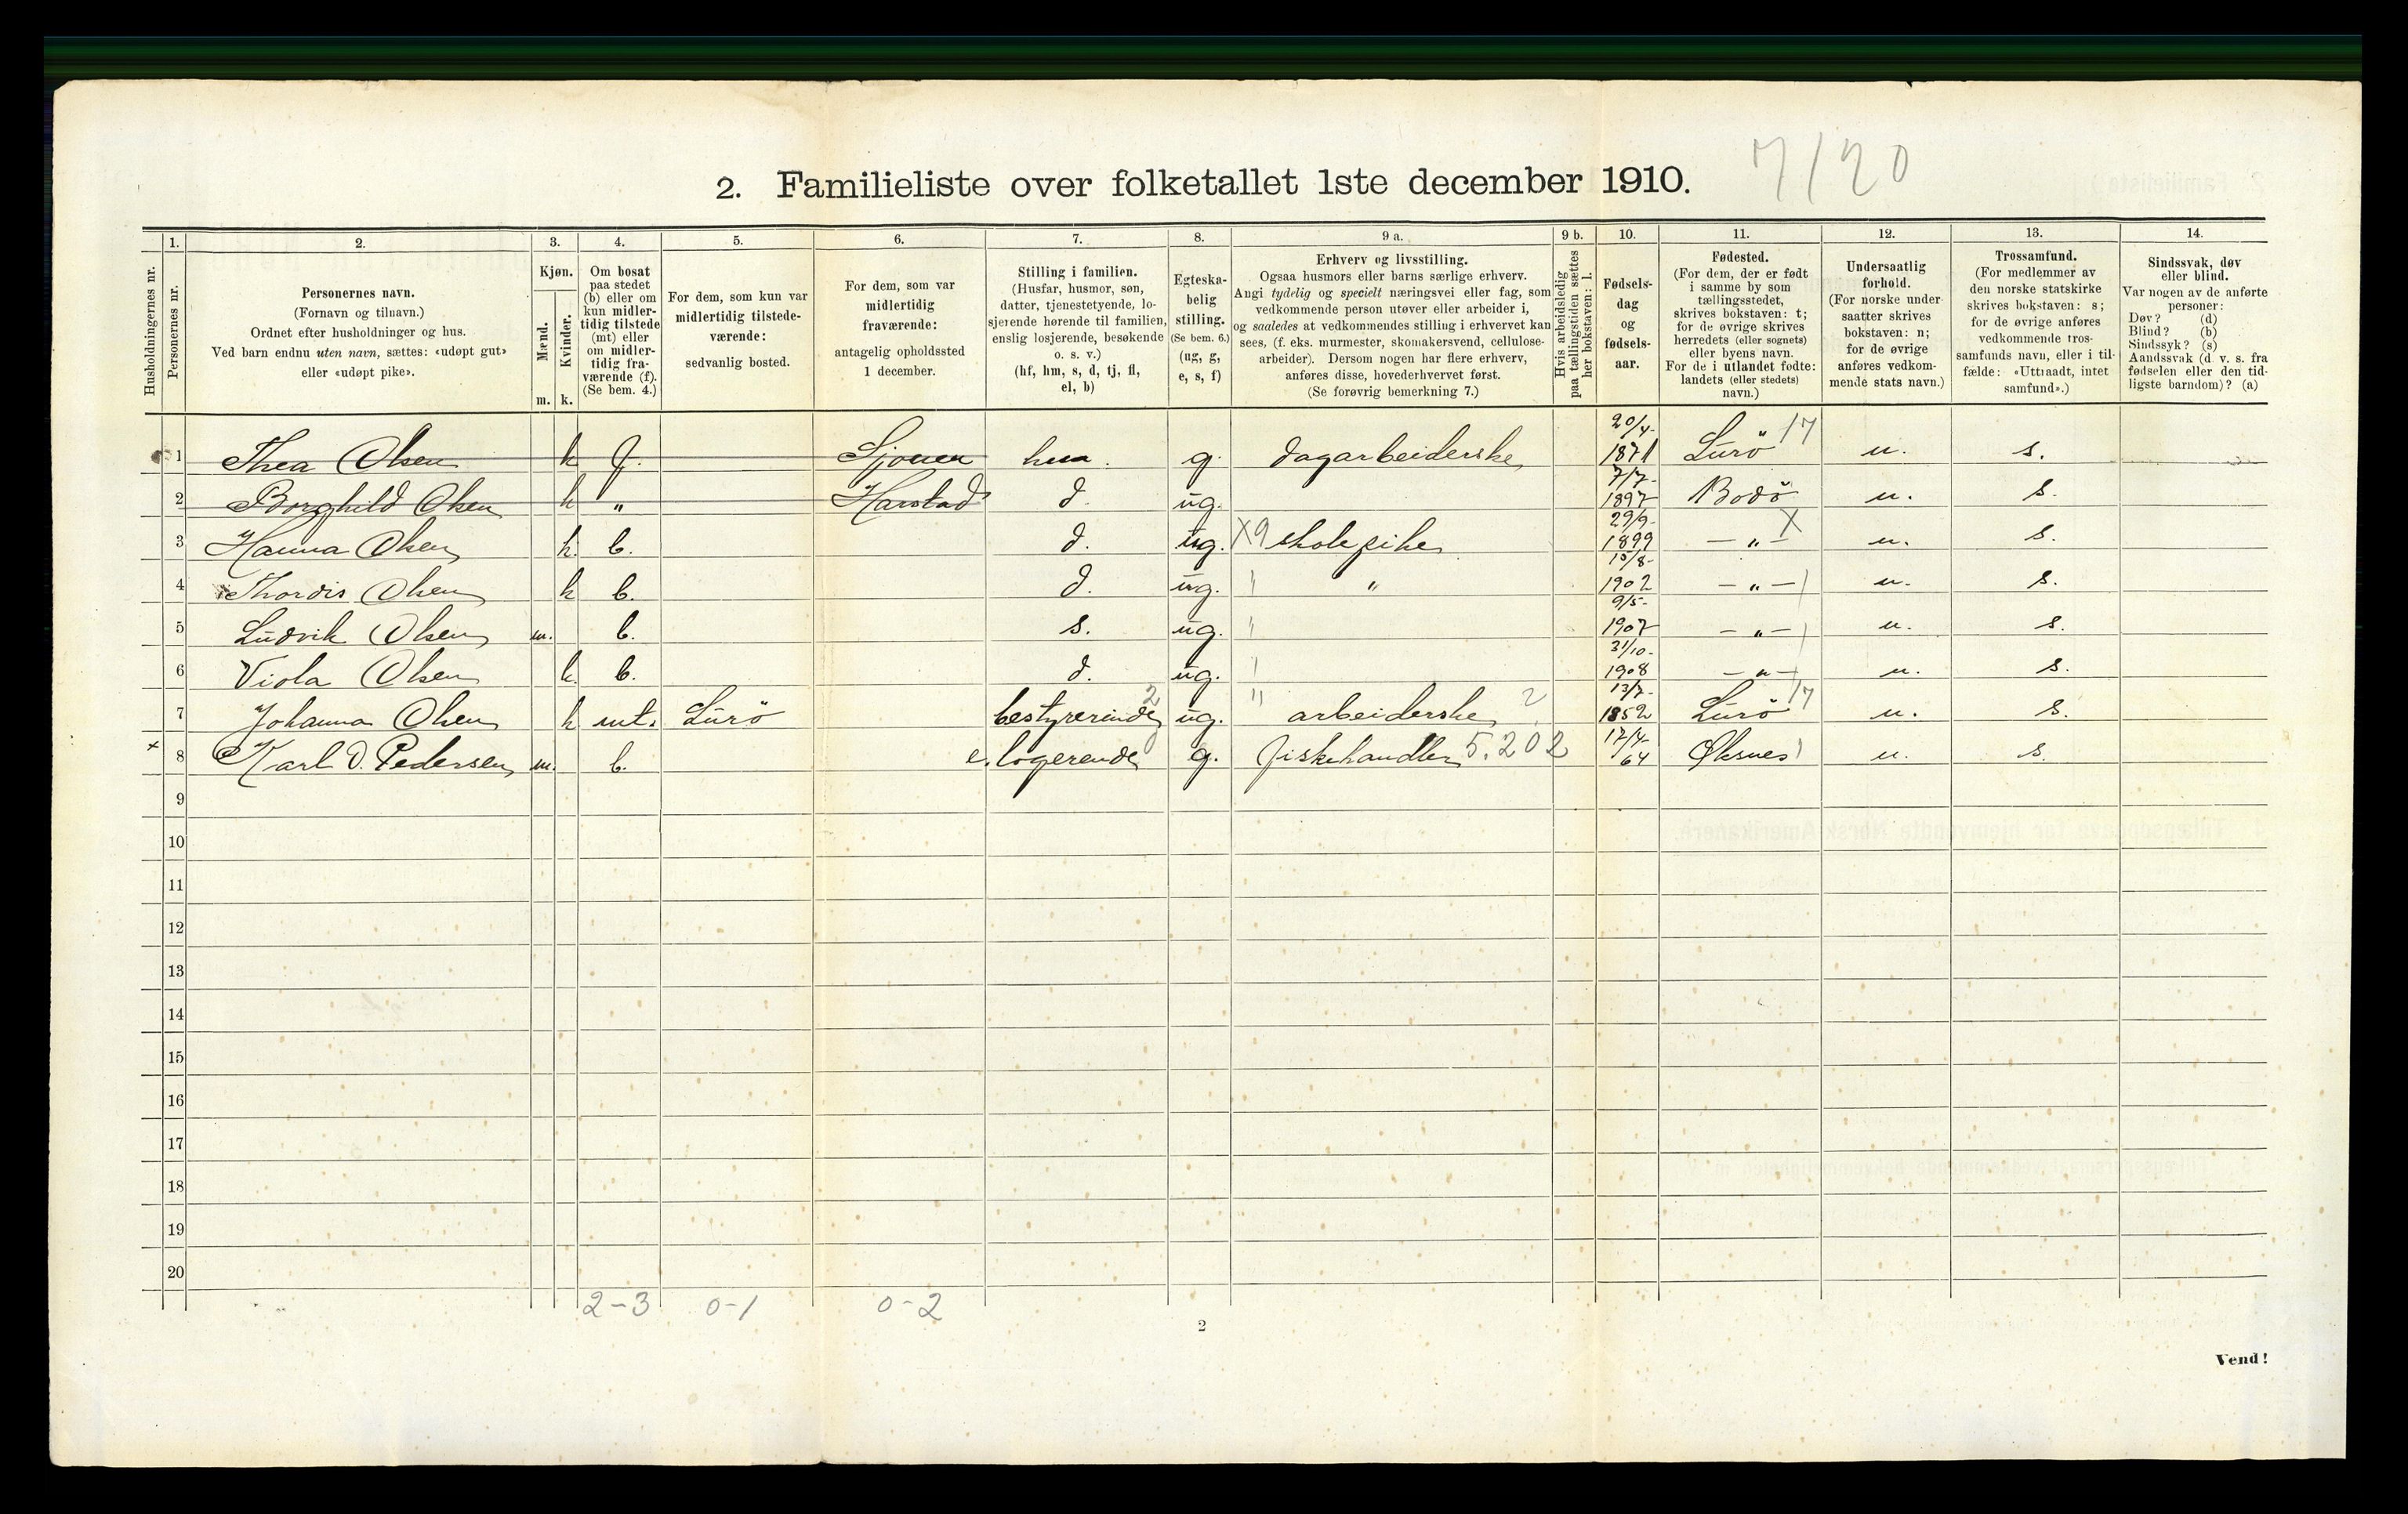 7/20
2. Familieliste over folketallet 1ste december 1910.
1. 2. 3. 4. 5. 6. 7. 8. 9 a. 9 b. 10. 11. 12. 13. 14.
Husholdningernes nr.
Personernes nr.
Personernes navn.
(Fornavn og tilnavn.)
Ordnet efter husholdninger og hus.
Ved barn endnu uten navn, sættes: «udøpt gut»
eller «udøpt pike».
Kjøn.
Mænd.
Kvinder.
m. k.
Om bosat
paa stedet
(b) eller om
kun midler-
tidig tilstede
(mt) eller
om midler-
tidig fra-
værende (f).
(Se bem. 4.)
For dem, som kun var
midlertidig tilstede-
værende:
sedvanlig bosted.
For dem, som var
midlertidig
fraværende:
antagelig opholdssted
1 december.
Stilling i familien.
(Husfar, husmor, søn,
datter, tjenestetyende, lo-
sjerende hørende til familien,
enslig losjerende, besøkende
o. s. v.)
(hf, hm, s, d, tj, fl,
el, b)
Egteska-
belig
stilling.
(Se bem. 6.)
(ug, g,
e, s, f)
Erhverv og livsstilling.
Ogsaa husmors eller barns særlige erhverv.
Angi tydelig og specielt næringsvei eller fag, som
vedkommende person utøver eller arbeider i,
og saaledes at vedkommendes stilling i erhvervet kan
sees, (f. eks. murmester, skomakersvend, cellulose-
arbeider). Dersom nogen har flere erhverv,
anføres disse, hovederhvervet først.
(Se forøvrig bemerkning 7.)
Hvis arbeidsledig
paa tællingstiden sættes
her bokstaven: l.
Fødsels-
dag
og
fødsels-
aar.
Fødested.
(For dem, der er født
i samme by som
tællingsstedet,
skrives bokstaven: t;
for de øvrige skrives
herredets (eller sognets)
eller byens navn.
For de i utlandet fødte:
landets (eller stedets)
navn.)
Undersaatlig
forhold.
(For norske under-
saatter skrives
bokstaven: n;
for de øvrige
anføres vedkom-
mende stats navn.)
Trossamfund.
(For medlemmer av
den norske statskirke
skrives bokstaven: s;
for de øvrige anføres
vedkommende tros-
samfunds navn, eller i til-
fælde: «Uttraadt, intet
samfund».)
Sindssvak, døv
eller blind.
Var nogen av de anførte
personer:
Døv? (d)
Blind? (b)
Sindssyk? (s)
Aandssvak (d. v. s. fra
fødselen eller den tid-
ligste barndom)? (a)
1 Thea Olsen k f. Sjonen g. dagarbeiderske 20/4- 1871 Lurö 17 n. s.
2 Borghild Olsen k " Harstad d. ug. 7/7- 1897 Bodö n. s.
3 Hanna Olsen k. b. d. ug. X9 skolepike 29/9- 1899 — " — X n. s.
4 Thordis Olsen k b. d. ug. " " 15/8- 1902 — " — n. s.
5 Ludvik Olsen m. b. s. ug. " 9/5- 1907 — " — n. s.
6 Viola Olsen k. b. d. ug. " 31/10- 1908 — " — n. s.
7 Johanna Olsen k mt. Lurö bestyrerinde 2 ug. " arbeiderske ? 13/7- 1852 Lurö 17 n. s.
x 8 Karl O. Pedersen m. b. e. logerende g. fiskehandler 5.202 17/4- 64 Øksnes n. s.
9
10
11
12
13
14
15
16
17
18
19
20
2-3 0-1 0-2
2
Vend!